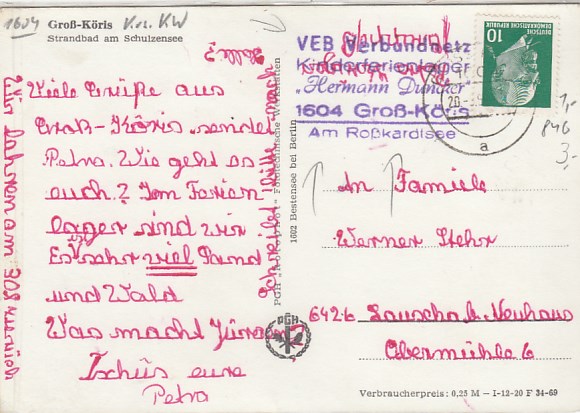 1604
Krs. KW
Groß-Köris
Strandbad am Schulzensee
Viele Grüße aus
Groß-Köris sendet
Petra. Wie geht es
euch? Im Ferien-
lager sind wir
Es sehr viel Sand
und Wald
Was macht Jürgen?
Tschüs eure
Petra
Wir fahren am 30.8
Schreibt bitte
PGH „ROTOPHOT" Fototechnische Werkstätten
1602 Bestensee bei Berlin
PGH
VEB Verbundnetz
Kinderferienlager
„Hermann Duncker"
1604 Groß-Köris
Am Roßkardtsee
DEUTSCHE DEMOKRATISCHE REPUBLIK
10
20
a
1,-
846
3,-
An Familie
Werner Stehr
6426 Lauscha b. Neuhaus
Obermühle 6
Verbraucherpreis: 0,25 M – I-12-20 F 34-69